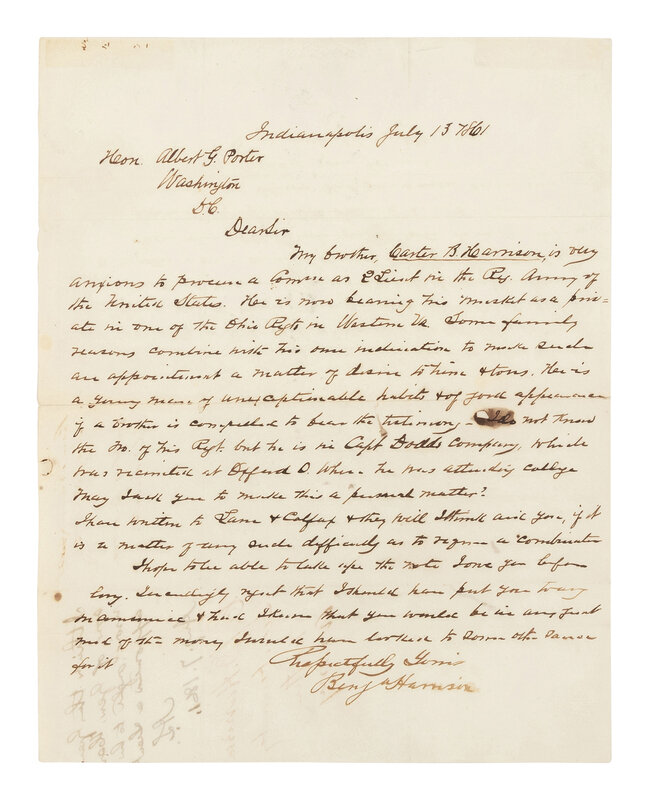 Indianapolis July 13 1861
Hon. Albert G. Porter
Washington
D.C.
Dear Sir
My brother, Carter B. Harrison, is very
anxious to procure a Comm as 2 Lieut in the Reg. Army of
the United States. He is now bearing his musket as a priv-
ate in one of the Ohio Regts in Western Va. Some family
reasons combine with his own inclination to make such
an appointment a matter of desire to him & to us. He is
a young man of unexceptionable habits & of good appearance
if a brother is compelled to bear the testimony – I do not know
the No. of his Regt. but he is in Capt Dodds Company, which
was recruited at Oxford O. where he was attending college
May I ask you to make this a personal matter?
I have written to Lane & Colfax & they will I think aid you, if it
is a matter of any such difficulty as to require a combination
I hope to be able to take up the note I owe you before
long. I exceedingly regret that I should have put you to any
inconvenience & had I known that you would be in any great
need of the money I would have looked to some other source
for it
Respectfully Yours
Benj Harrison